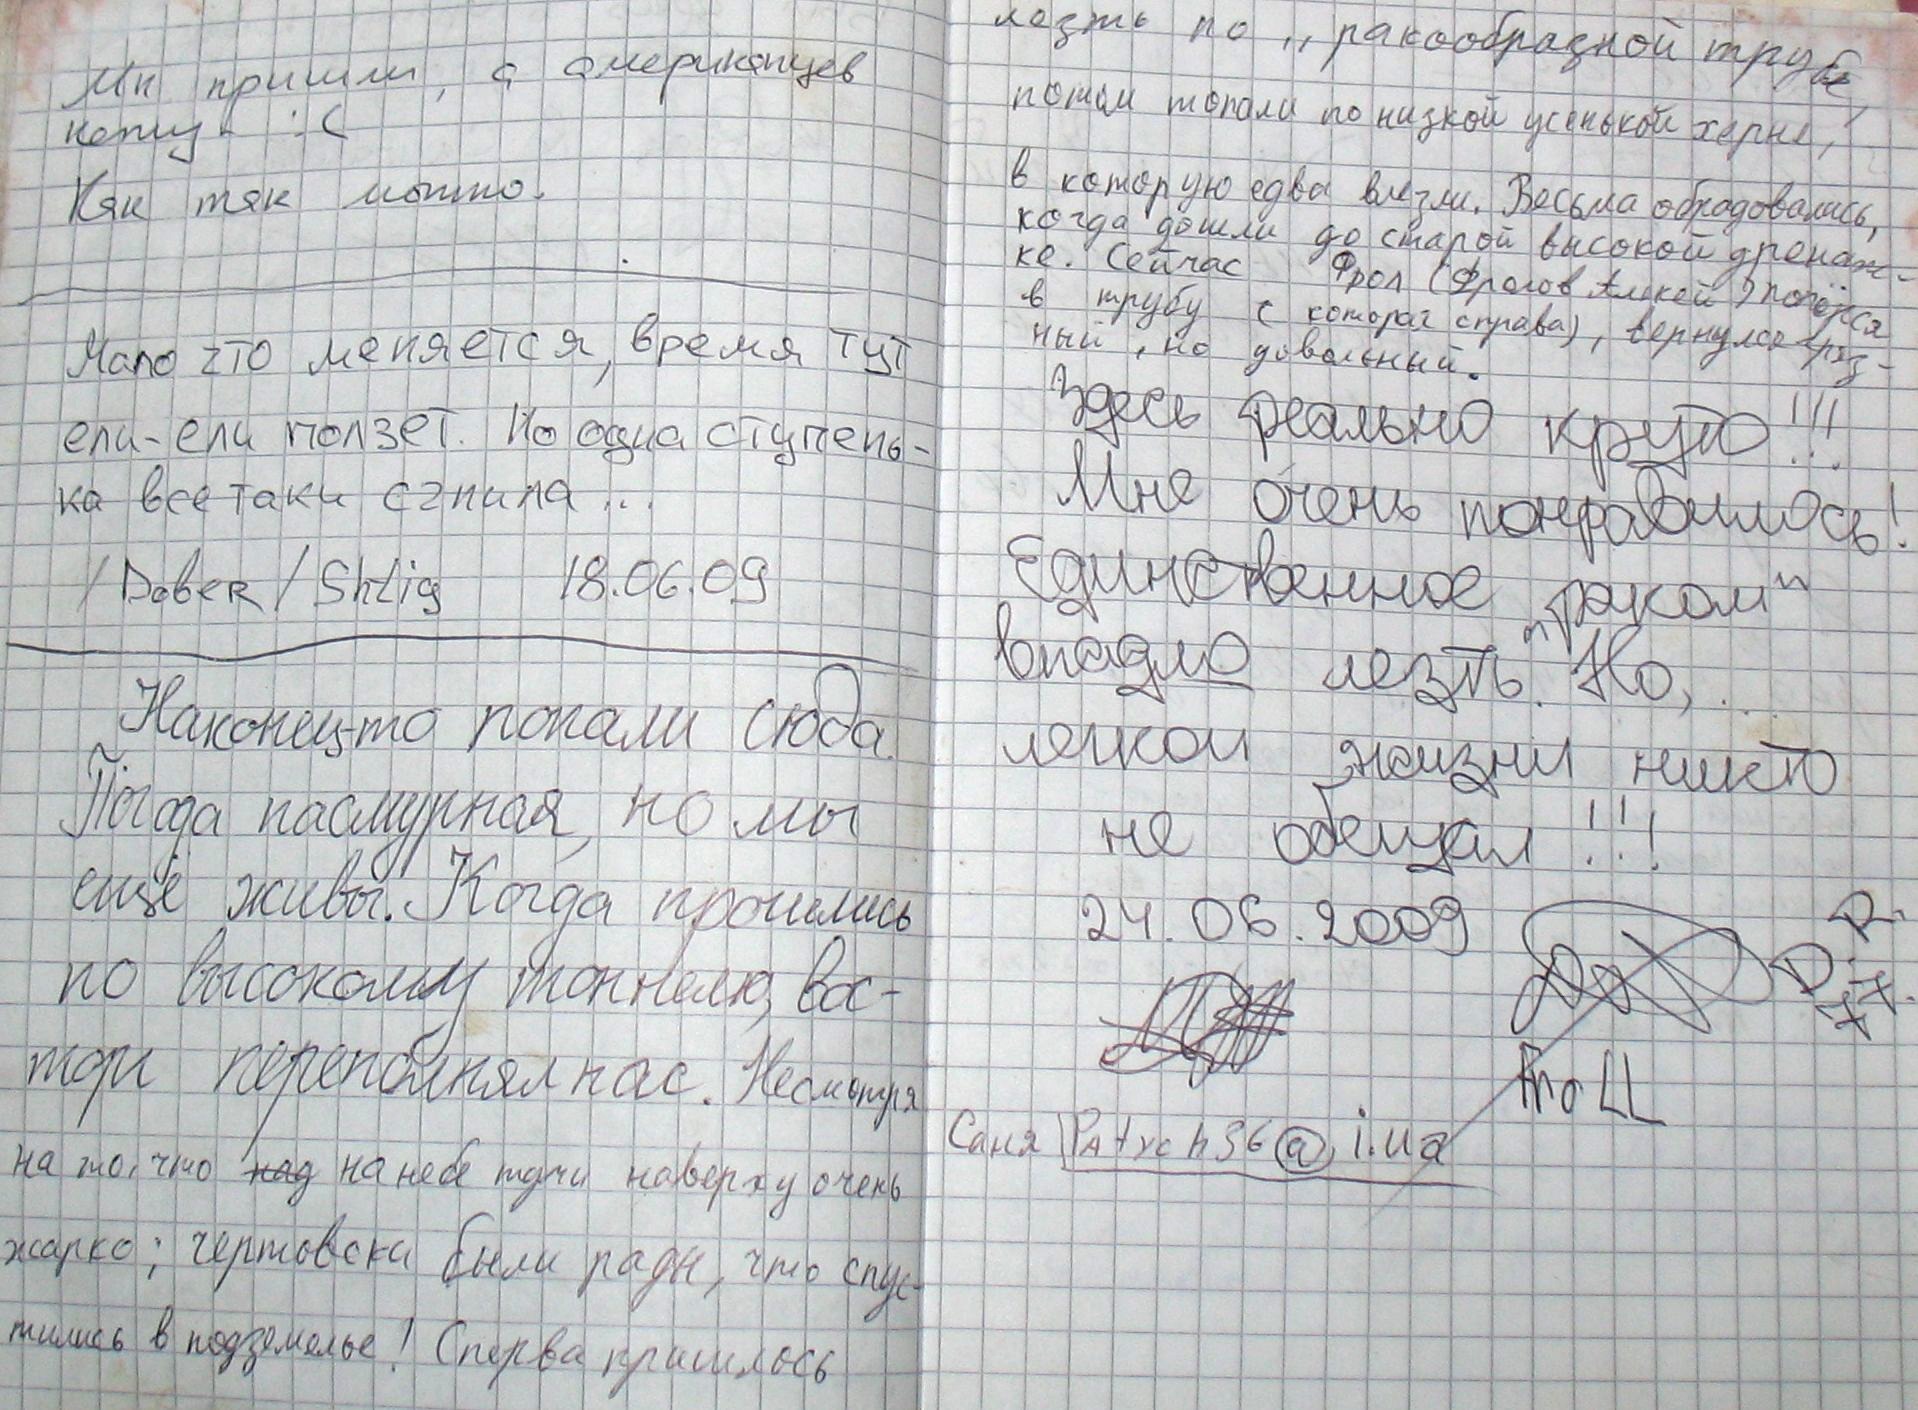 Мы пришли, а американцев
нету :(
Как так можно.
Мало что меняется, время тут
ели-ели ползет. Но одна ступень-
ка все таки сгнила...
/DobeR/ Shtig 18.06.09
Наконец-то попали сюда.
Погода пасмурная, но мы
ещё живы. Когда прошлись
по высокому тоннелю, вос-
торг переполнял нас. Несмотря
на то, что над на небе тучи наверху очень
жарко; чертовски были рады, что спус-
тились в подземелье! Сперва пришлось
лезть по „ракообразной трубе,
потом топали по низкой усенькой херне,
в которую едва влезли. Весьма обрадовались,
когда дошли до старой высокой дренаж-
ке. Сейчас Фрол (Фролов Алексей) попёрся
в трубу (которая справа), вернулся гряз-
ный, но довольный.
Здесь реально круто!!!
Мне очень понравилось!
Единственное „раком"
впадло лезть. Но, ...
легкой жизни никто
не обещал!!!
24.06.2009
D.R.
Саня PAtych36@i.ua